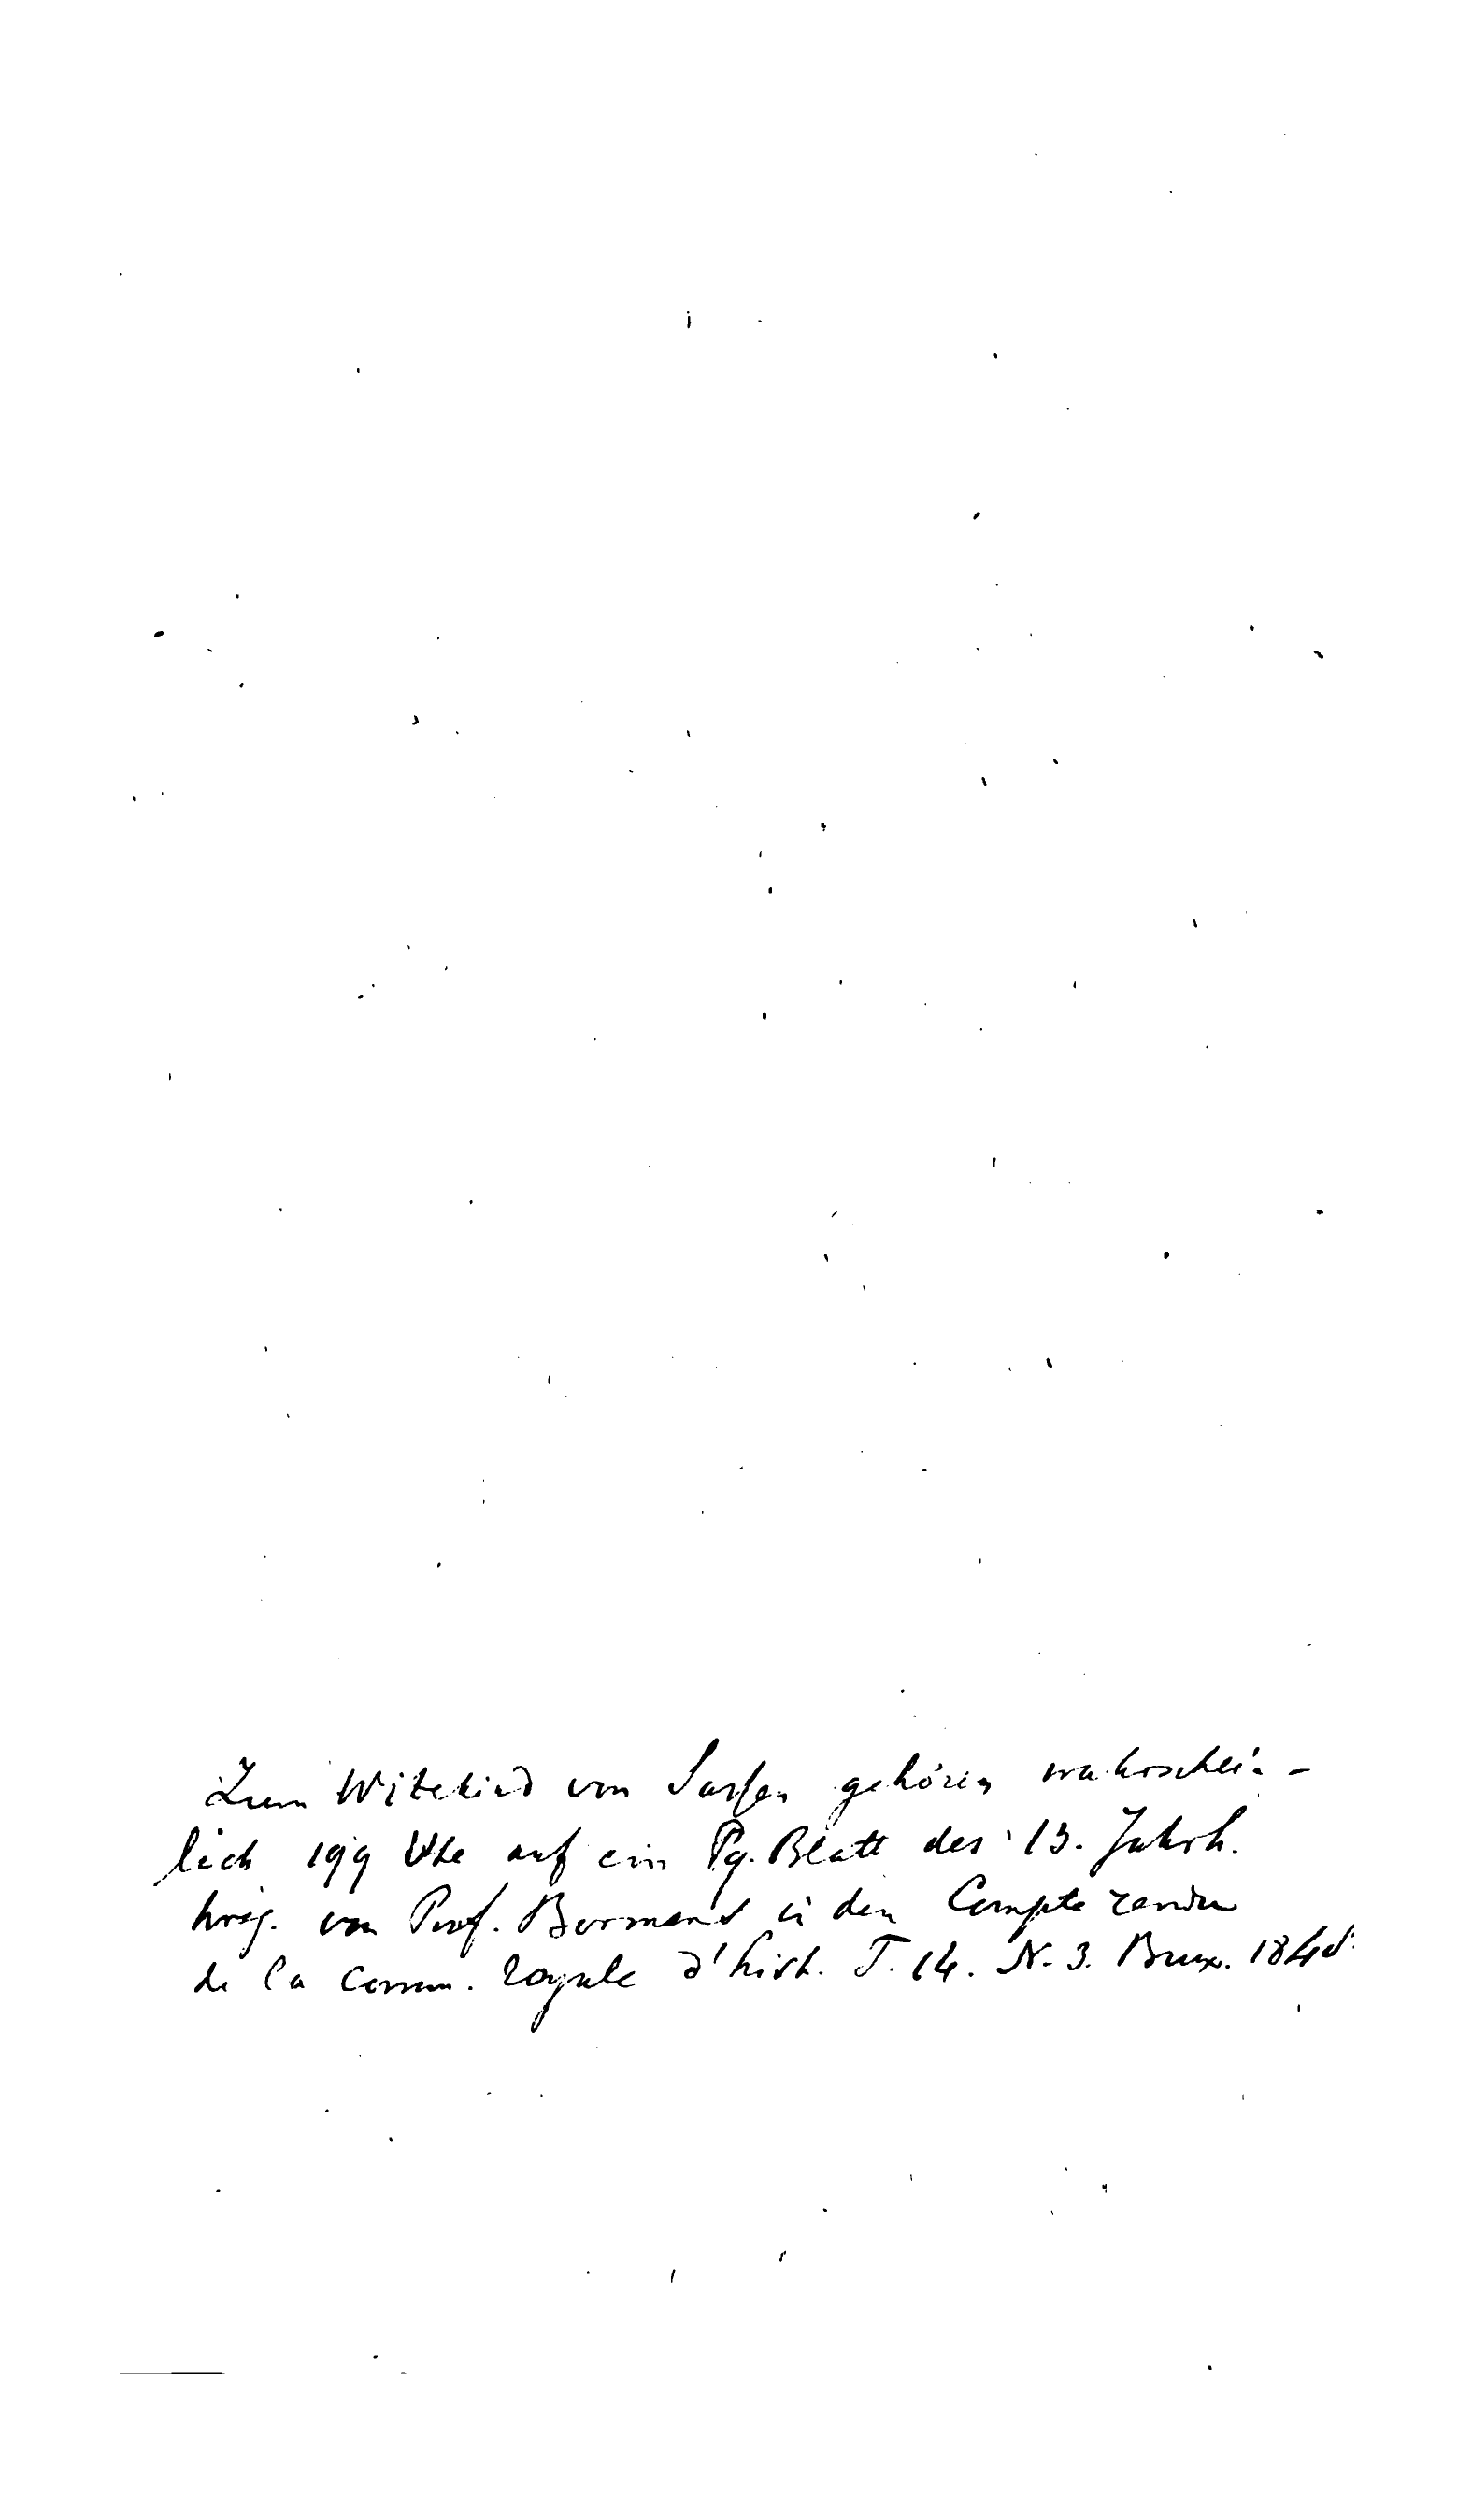 Zum Witekind von Sassen gehören wahrschein-
lich 199 Vse auf ein Pg. Blatt des 13. Jahrh.
hrsg. von Prof. Bormans in den Compte rendu
de la comm. royale d'hist. T. 14. N. 3. Brux. 1848.